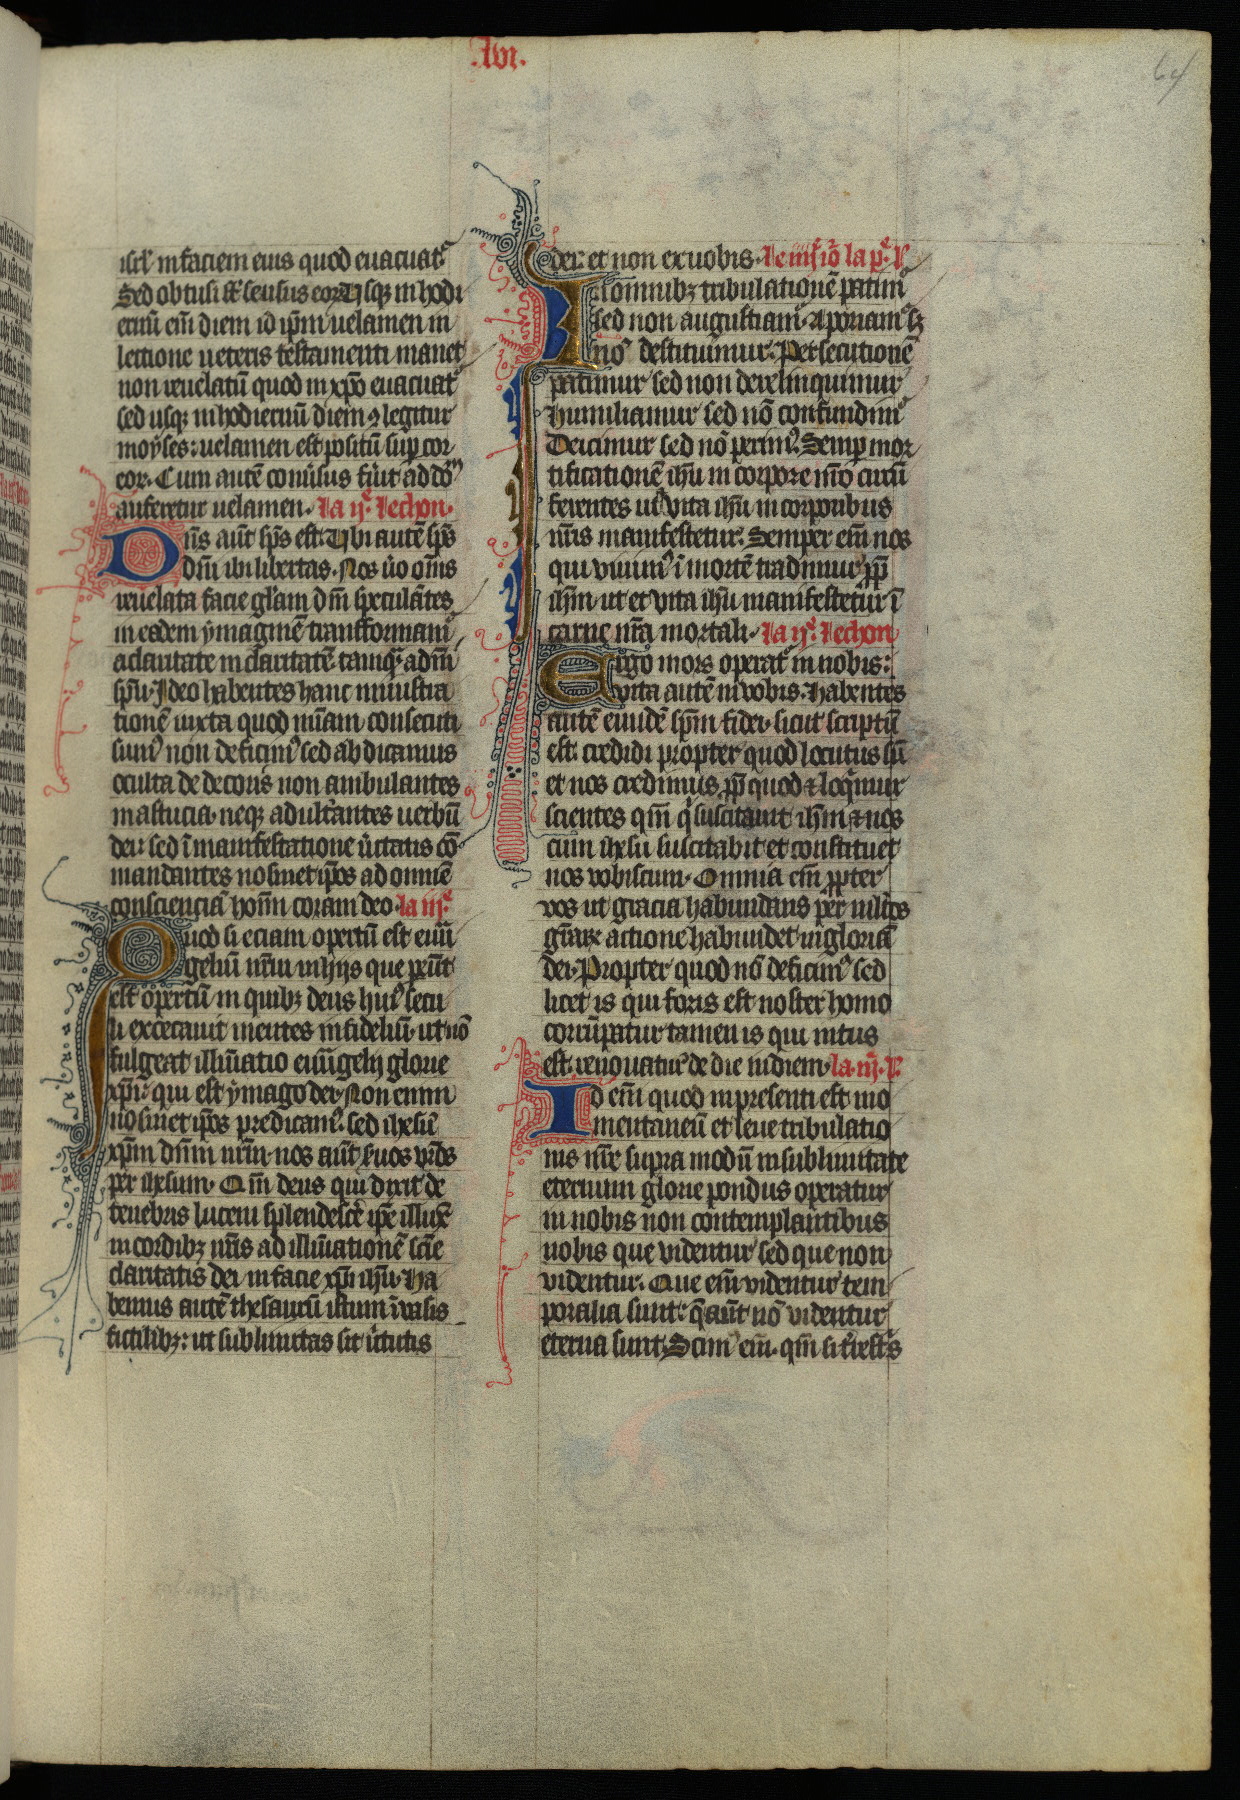 .xvi.
64
isrl' in faciem eius quod euacuat᷑
Sed obtusi st̄ sensus eorū Usqz in hodi
ernū em̄ diem id ip̄m uelamen in
lectione ueteris testamenti manet
non reuelatū quod in xp̄o euacuat᷑
sed usqz in hodiernū diem ꝯ legitur
moyses: uelamen est positū sup cor
eor. Cum autē conuersus fu̓it ad do᷑
auferetur uelamen. la ij. lechon.
Dn̄s aūt sp̄s est Ubi autē sp̄s
dn̄i ibi libertas. Nos u̓o om̄s
reuelata facie glām dn̄i speculātes
in eadem ymaginē transformam᷑
a claritate in claritatē tamq̄ a dn̄i
sp̄u. Ideo habentes hanc ministra
tionē iuxta quod mīam consecuti
sum᷒ non deficim᷒ sed abdicamus
oculta dedecoris non ambulantes
in astucia. neqz adult̓antes uerbū
dei: sed ī manifestatione u̓itatis cō
mandantes nosmet ip̄os ad omnē
conscienciā hoīm coram deo. la iij.
Quod si eciam opertū est euū
geliū nr̄m in hijs que pereūt
est opertū in quibz deus hui᷒ secu
li excecauit mentes infideliū. ut nō
fulgeat illūiatio euūgelij glorie
xp̄i. qui est ymago dei. Non enim
nosmet ip̄os predicam᷒. sed ihesū
xp̄m dn̄m nr̄m. nos aūt s̓uos vr̄os
per ihesum. Qm̄ deus qui dixit de
tenebris lucem splendescere ip̄e illuxit
in cordibz nr̄is ad illūiationē scīe
claritatis dei in facie xp̄i ihū. Ha
bemus autē thesaurū istum ī vasis
fictilibz: ut sublimitas sit u̓tutis
dei. et non ex uobis.
In omnibz tribulationē patim᷑
sed non angustiam᷑. Aporiam᷑ sz
nō destituimur. Persecutionē
patimur sed non derelinquimur
Humiliamur sed nō confundim᷑
Deicimur sed nō perim᷒. Semp mor
tificationē ihū in corpore nr̄o circū
ferentes ut vita ihū in corporibus
nr̄is manifestetur. Semper em̄ nos
qui viuim᷒ ī mortē tradimur ꝓp̄
ihm̄. ut et vita ihū manifestetur ī
carne nr̄a mortali. la ij. lechon
Ergo mors operat᷑ in nobis:
vita autē in vobis. Habentes
autē eundē sp̄m fidei. sicut scriptū
est. credidi propter quod locutus sū
et nos credimus ꝓp̄ quod ⁊ loqimur
scientes qm̄ qui suscitauit ihm̄ ⁊ nos
cum ihesu suscitabit et constituet
nos vobiscum. Omnia em̄ ꝓpter
vos ut gracia habundans per mltos
grārz actione habundet in gloriā
dei. Propter quod nō deficim᷒ sed
licet is qui foris est noster homo
corrūpatur tamen is qui intus
est. renouatur de die in diem. la iij.
Id em̄ quod in presenti est mo
mentaneū et leue tribulatio
nis nr̄e supra modū in sublimitate
eternum glorie pondus operatur
in nobis non contemplantibus
nobis que videntur sed que non
videntur. Que em̄ videntur tem
poralia sunt: q̄ aūt nō videntur
eterna sunt. Scim᷒ em̄. qm̄ si t̓restris